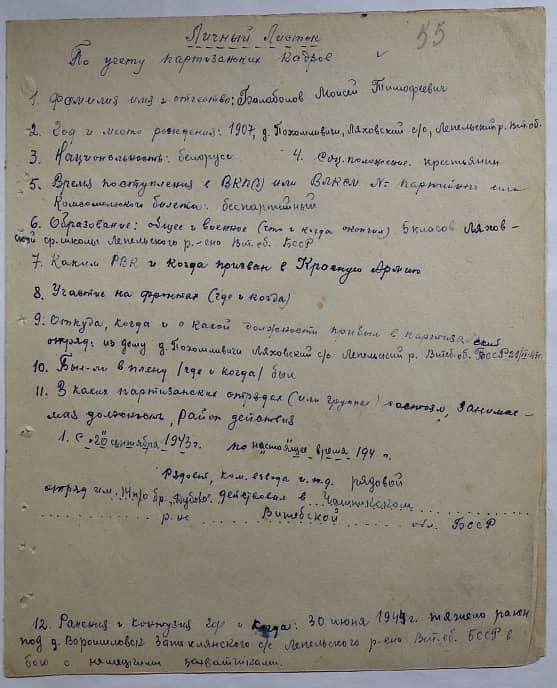 Личный Листок
55
По учету партизанских кадров
1. Фамилия имя и отчество: Балаболов Моисей Тимофеевич
2. Год и место рождения: 1907, д. Похомливичи, Ляховский с/с, Лепельский р. Вит. об.
3. Национальность: белорусс 4. Соц. положение. крестьянин
5. Время поступления в ВКП(б) или ВЛКСМ № партийного или
Комсомольского билета: беспартийный
6. Образование: общее и военное (что и когда окончил) 5 класов Ляхов-
ской ср. школы Лепельского р-она Вит. об. БССР
7. Каким РВК и когда призван в Красную Армию
8. Участие на фронтах (где и когда)
9. Откуда, когда и в какой должности прибыл в партизанский
отряд: из дому д. Похомливичи Ляховский с/с Лепельский р. Витеб. об. БССР
10. Был-ли в плену /где и когда/ был
11. В каких партизанских отрядах (или группах) состоял, Занимае-
мая должность, Район действия
1. С "20" сентября 1943 г. по настоящее время 194 г.
Рядовой, ком. взвода и т.д. рядовой
отряд им. 14 п/о бр. "Дубова" действовал в Чашникском
р-не Витебской обл. БССР
12. Ранения и контузия где и когда: 30 июня 1944 г. тяжело ранен
под д. Ворошиловск с/с Лепельского р-оно Вит. об. БССР в
бою с немецкими захватчиками.